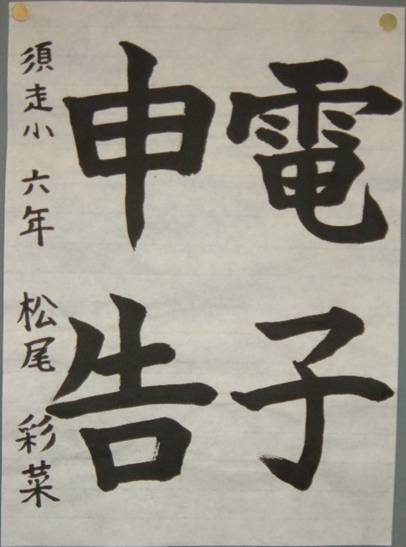 電子
申告
須走小 六年 松尾 彩菜